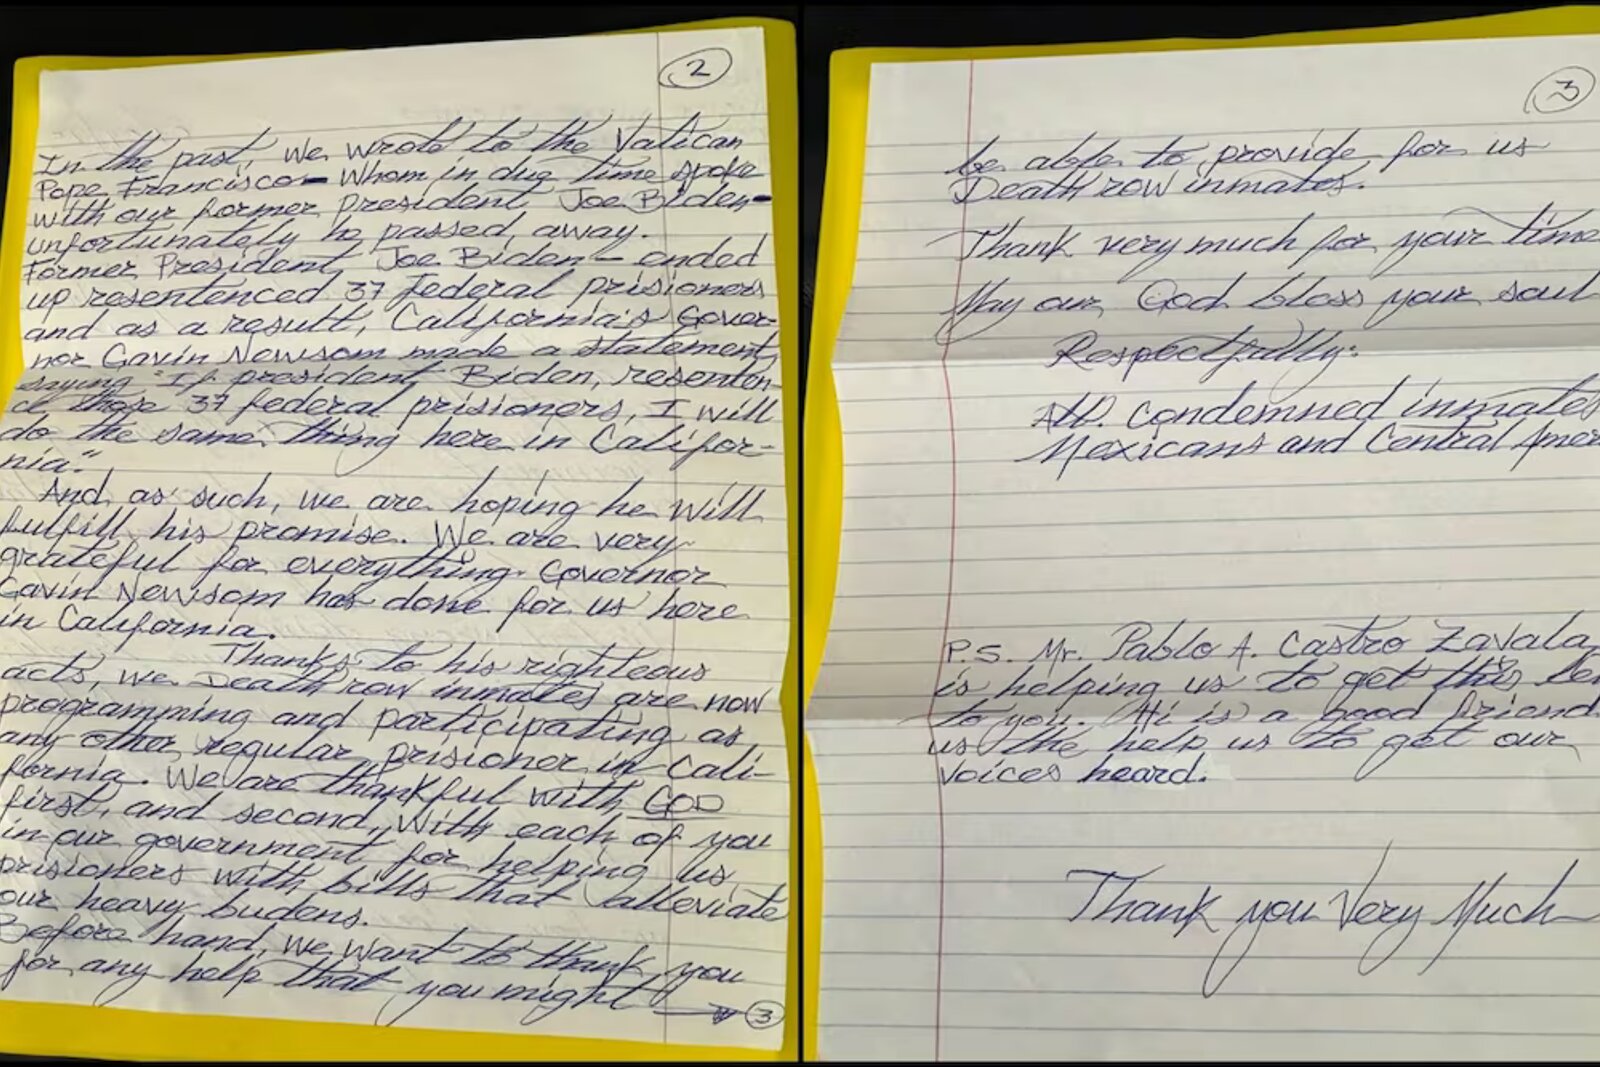 2
In the past, we wrote to the Vatican
Pope Francisco - Whom in due time spoke
with our former president Joe Biden -
unfortunately he passed away.
Former President Joe Biden - ended
up resentenced 37 federal prisioners
and as a result, California's Gover-
nor Gavin Newsom made a statement,
saying "If president Biden, resenten-
ce those 37 federal prisioners, I will
do the same thing here in Califor-
nia."
And as such, we are hoping he will
fulfill his promise. We are very
grateful for everything Governor
Gavin Newsom has done for us here
in California.
Thanks to his righteous
acts, we Death row inmates are now
programming and participating as
any other regular prisioner in Cali-
fornia. We are thankful with GOD
first, and second, with each of you
in our government for helping us
prisioners with bills that alleviate
our heavy budens.
Before hand, we want to thank you
for any help that you might → 3
3
be able to provide for us
Death row inmates.
Thank very much for your time
May our God bless your soul
Respectfully:
All condemned inmates
Mexicans and Central Amer
P.S. Mr. Pablo A. Castro Zavala
is helping us to get this
to you. Hi is a good friend
us the help us to get our
voices heard.
Thank you Very Much